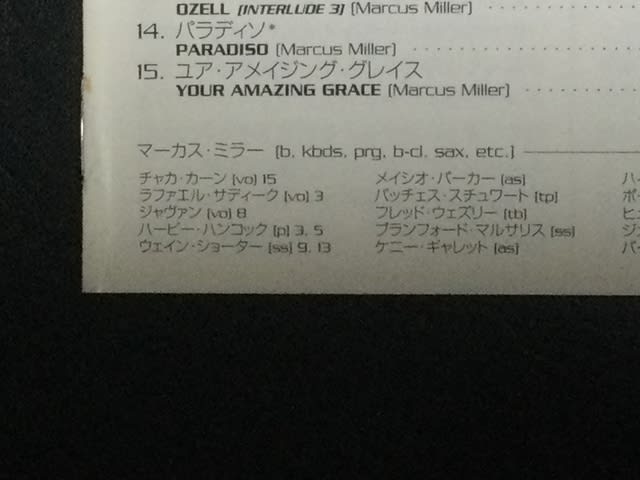 OZELL [INTERLUDE 3] (Marcus Miller)
14. パラディソ*
PARADISO (Marcus Miller) ・・・・・・・・・・・・・・・・・・・・
15. ユア・アメイジング・グレイス
YOUR AMAZING GRACE (Marcus Miller) ・・・・・・・・・・
マーカス・ミラー [b, kbds, prg, b-cl, sax, etc.]
チャカ・カーン [vo] 15 メイシオ・パーカー [as]
ラファエル・サディーク [vo] 3 パッチェス・スチュワート [tp]
ジャヴァン [vo] 8 フレッド・ウェズリー [tb]
ハービー・ハンコック [p] 3, 5 ブランフォード・マルサリス [ss]
ウェイン・ショーター [ss] 9, 13 ケニー・ギャレット [as]